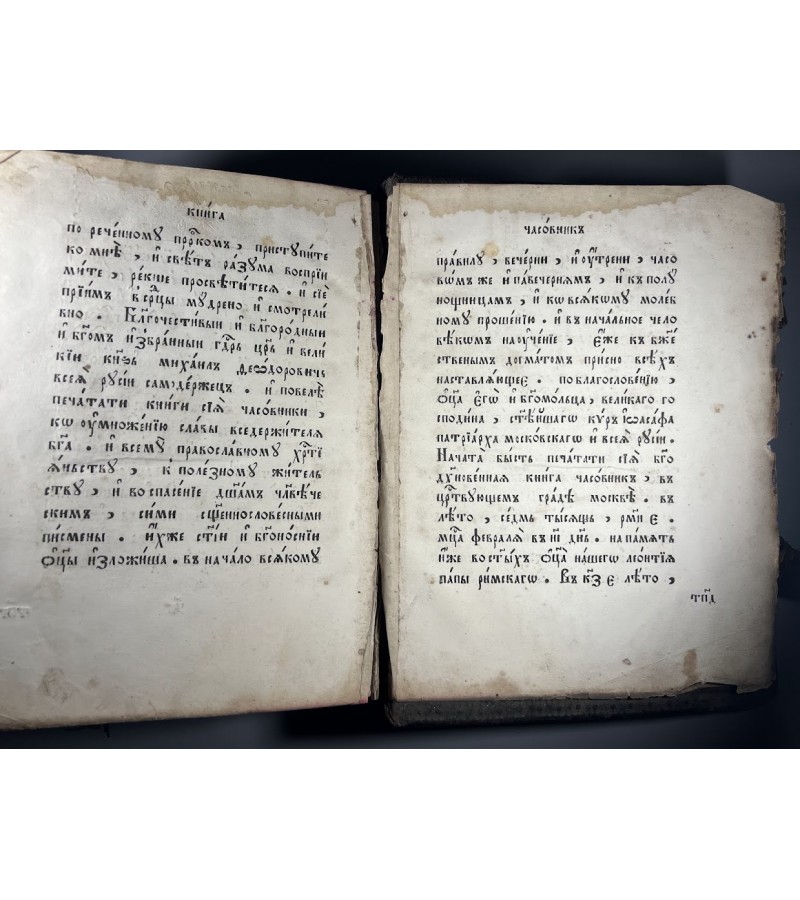 кни́га
по рече́нному прⷪ҇ркомъ, приступи́те
ко мнѣ̀, и҆ свѣ́тъ ра́зума воспрїи
ми́те, ре́кше просвѣти́теся. и҆ сїѐ
прїи́мъ въ се́рⷣцы мудрено̀ и҆ смотрели
вно. Бл҃гочести́вый и҆ бл҃горо́дный
и҆ бг҃омъ и҆збра́нный гдⷭ҇рь цр҃ь и҆ вели
кїи кн҃зь миха́илъ ѳео́доровичь
всеѧ̀ русі́и самоде́ржецъ. и҆ повелѣ̀
печа́тати кни́ги сїѧ̀ часо́вники,
ко ᲂу҆множе́нїю сла́вы вседержи́телѧ
бг҃а. и҆ всему̀ правосла́вному хрⷭ҇тї
ѧ́ньству, к поле́зному жи́тель
ству, и҆ во спасе́нїе дш҃а́мъ чл҃вѣ́че
скимъ, си́ми сщ҃еннослове́сными
пи́смены. и҆́хже ст҃і́и и҆ бг҃оно́сніи
ѻ҆ц҃ы̀ и҆зложи́ша. въ нача́ло всѧ́кому
часо́вникъ
пра́вилу, вече́рни, и҆ ᲂу҆́трени, часо
вѡ́мъ же и҆ павече́рнѧмъ, и҆ къ полу
но́щницамъ, и҆ ко всѧ́кому моле́б
ному проше́нїю. и҆ въ нача́льное чело
вѣ́комъ на ᲂу҆че́нїе, є҆́же къ бж҃е
ственымъ до́гматомъ при́сно всѣ́хъ
наставлѧ́ющее. по благослове́нїю,
ѻ҆ц҃а̀ є҆гѡ̀ и҆ бг҃омо́льца, вели́каго го
сподина, ст҃ѣ́йшаго ку́ръ і҆ѡаса́фа
патрїа́рха моско́вскаго и҆ всеѧ̀ русі́и.
Нача́та бы́сть печа́тати сїѧ̀ бг҃о
дх҃нове́нная кни́га часо́вникъ, въ
црⷭ҇твующемъ гра́дѣ москвѣ̀. въ
лѣ́то, се́дмь ты́сящь, рм҃и е.
мцⷭ҇а февра́лѧ въ и҃і дн҃ь. на па́мять
и҆́же во ст҃ы́хъ ѻ҆ц҃а̀ на́шего лео́нтїѧ
па́пы ри́мскаго. Въ к҃з е лѣ́то,
тп҃д